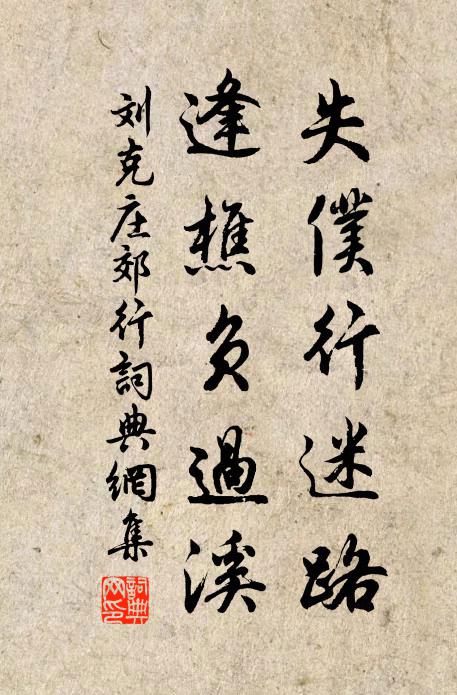 失僕行迷路
逢樵負過溪
刘克庄郊行詞典網集
詞典网印